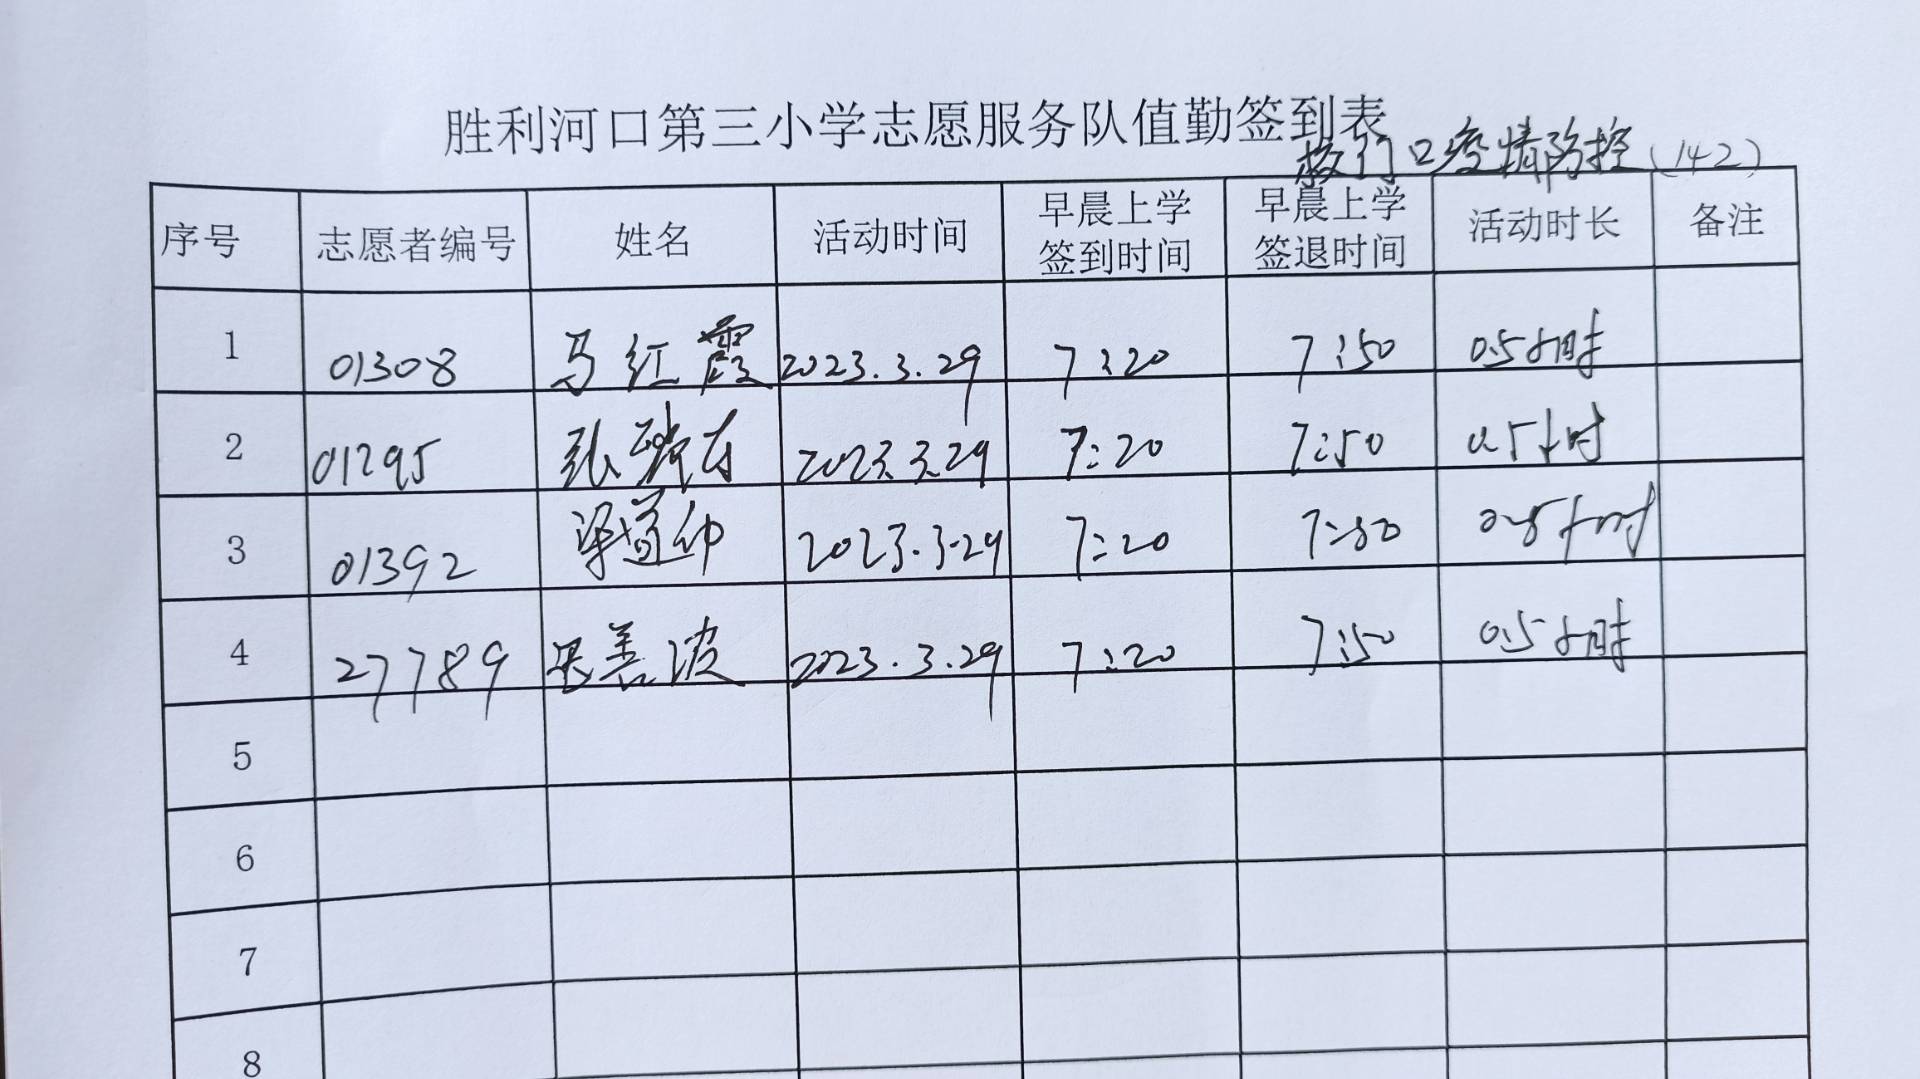 胜利河口第三小学志愿服务队值勤签到表
校门口疫情防控(142)
序号 志愿者编号 姓名 活动时间 早晨上学签到时间 早晨上学签退时间 活动时长 备注
1 01308 马红霞 2023.3.29 7:20 7:50 0.5小时
2 01295 张 2023.3.29 7:20 7:50 0.5小时
3 01392 2023.3.29 7:20 7:50 0.5小时
4 27789 善波 2023.3.29 7:20 7:50 0.5小时
5
6
7
8